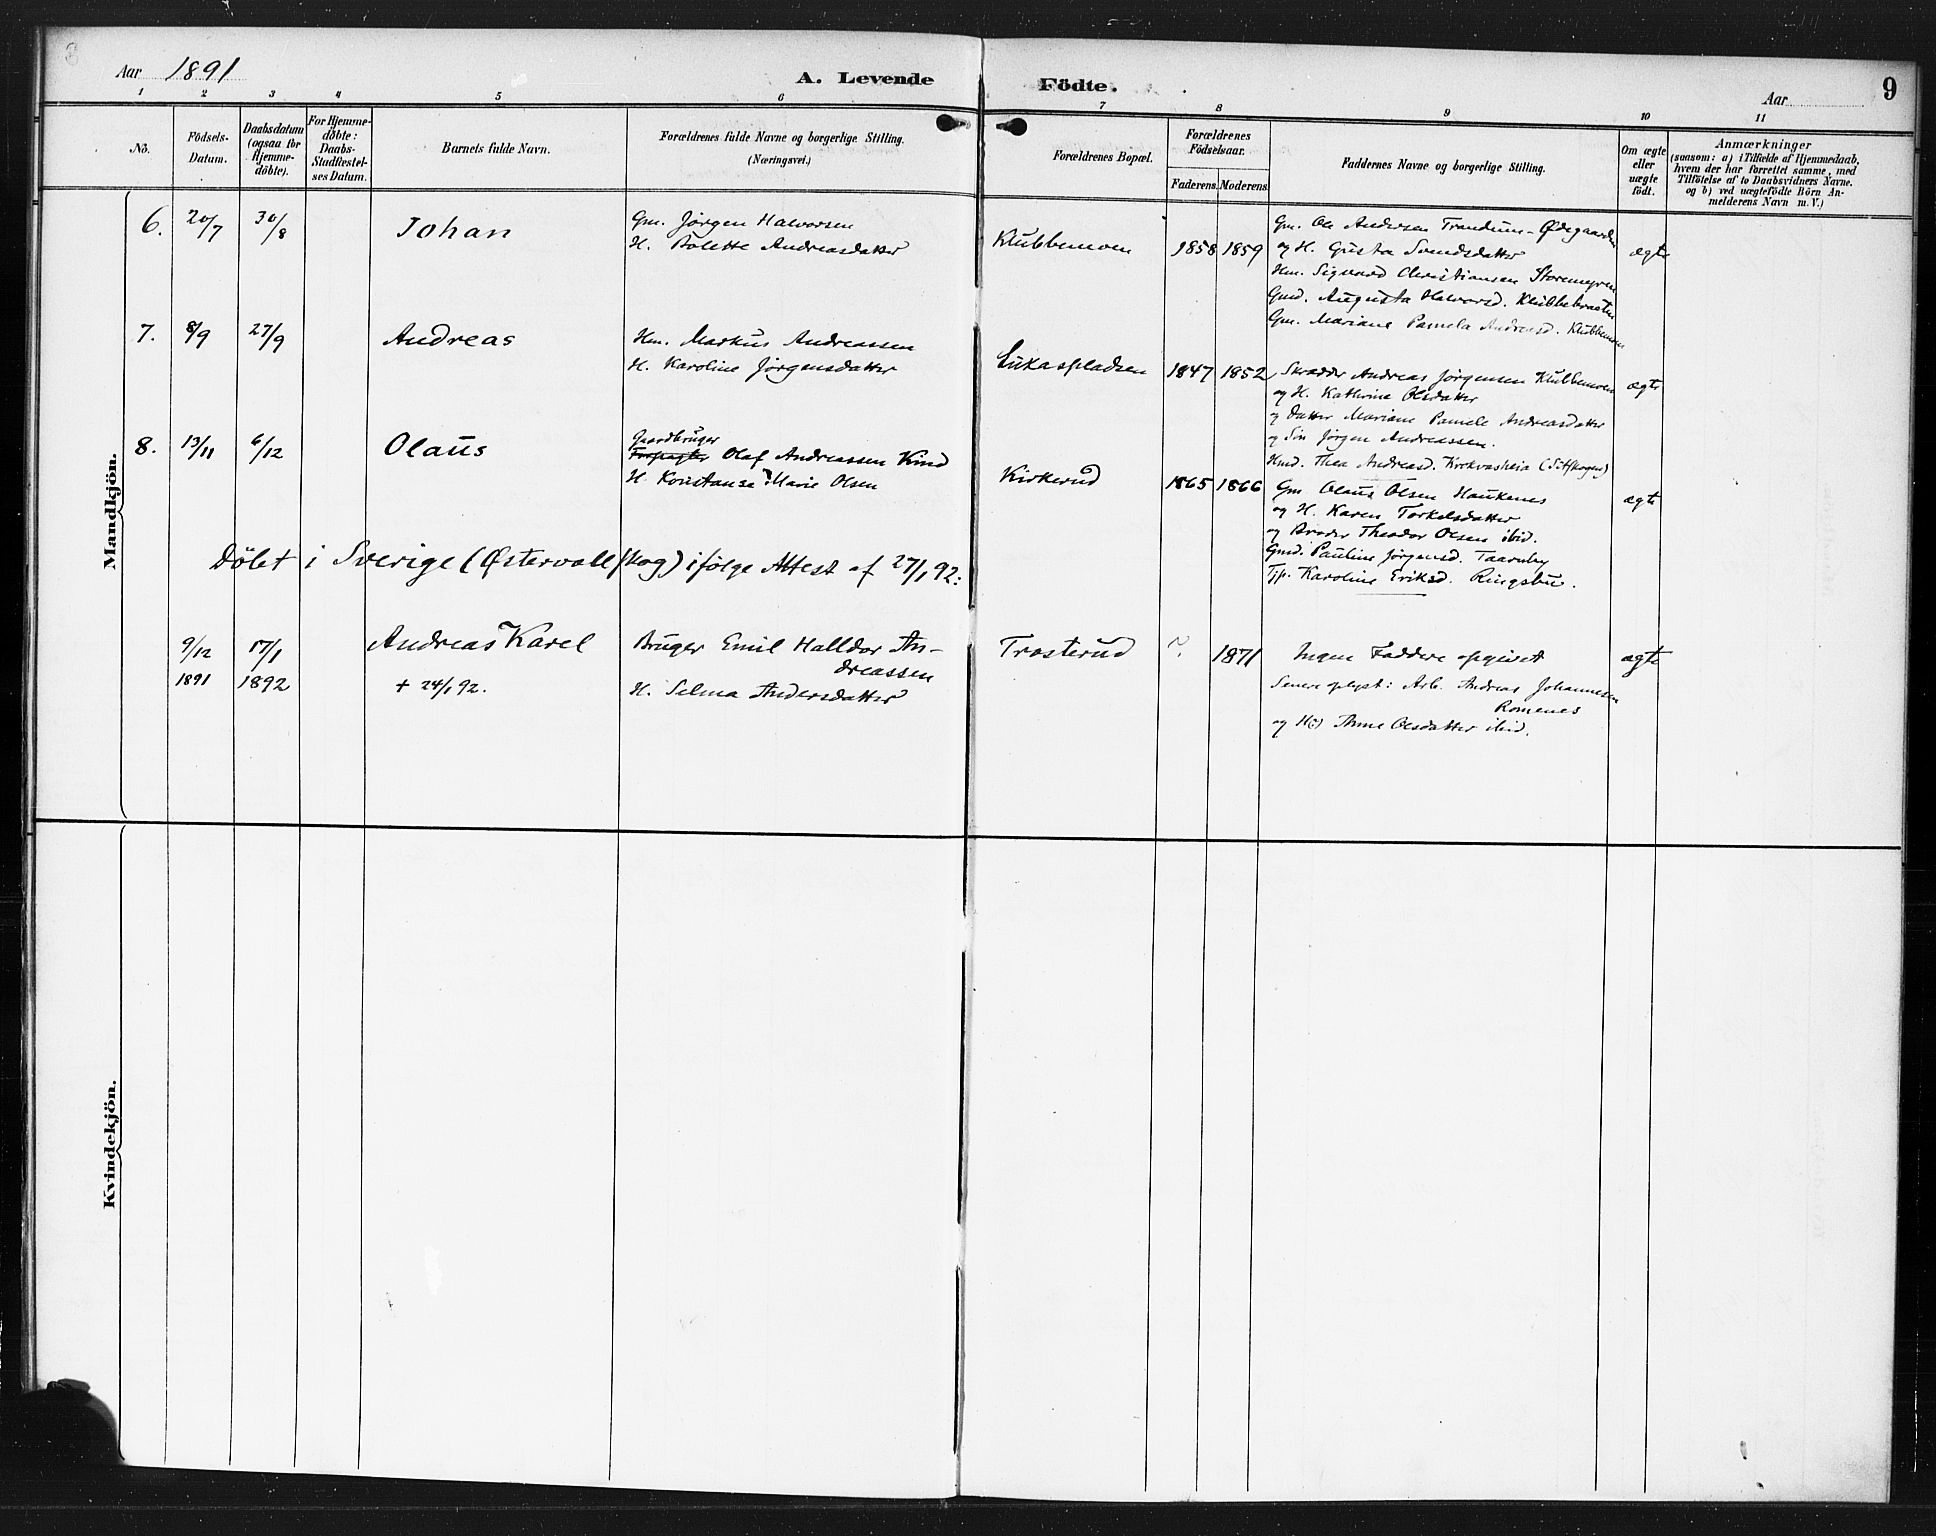 Aar 1891
A. Levende Födte.
Aar
9
1 2 3 4 5 6 7 8 9 10 11
No.
Födsels-
Datum.
Daabsdatum
(ogsaa for
Hjemme-
döbte).
For Hjemme-
döbte:
Daabs-
Stadfæstel-
ses Datum.
Barnets fulde Navn.
Forældrenes fulde Navne og borgerlige Stilling.
(Næringsvei.)
Forældrenes Bopæl.
Forældrenes
Födselsaar.
Faderens. Moderens.
Faddernes Navne og borgerlige Stilling.
Om ægte
eller
uægte
födt.
Anmærkninger
(saasom: a) i Tilfælde af Hjemmedaab,
hvem der har forrettet samme, med
Tilföielse af to Daabsvidners Navne.
og b) ved uægtefödte Börn An-
melderens Navn m. V.)
Mandkjön.
6. 20/7 30/8 Johan
Gm. Jørgen Halvorsen
H. Bolette Andreasdatter
Klubbemoen 1858 1859
Gm. Ole Andersen Trandum-Ødegaarden
og H. Gusta Svendsdatter
Hm. Sigvard Christiansen Storemyren
Gmd. Augusta Halvorsd. Klubbebraaten
Gm. Mariane Pamela Andreasd. Klubbemoen
ægte
7. 8/9 27/9 Andreas
Hm. Markus Andreassen
H. Karoline Jørgensdatter
Lukaspladsen 1847 1852
Skrædder Andreas Jørgensen Klubbemoen
og H. Kathrine Olsdatter
og Datter Mariane Pamele Andreasdatter
og Søn Jørgen Andreassen.
Hmd. Thea Andreasd. Krokvasheia (Sitskogen)
ægte
8. 13/11 6/12 Olaus
Gaardbruger
Forpagter Olaf Andreassen Kind
H. Konstanse Marie Olsen
Kirkerud 1865 1866
Gm Olaus Olsen Haukenes
og H. Karen Torkelsdatter
og Broder Theodor Olsen ibid.
Gmd. Pauline Jørgensd. Taarnby
Tjp. Karoline Eriksd. Ringsbu.
ægte
Døbt i Sverige (Østervallskog) ifølge Attest af 27/1 92:
9/12 1891
17/1 1892
Andreas Karel
+ 24/1 92.
Bruger Emil Halldor An-
dreassen
H. Selma Andersdatter
Trosterud ? 1871
Ingen Faddere opgivet
Senere oplyst: Arb. Andreas Johannesen
Romenes
og H(?) Anne Olsdatter ibid.
ægte
Kvindekjön.